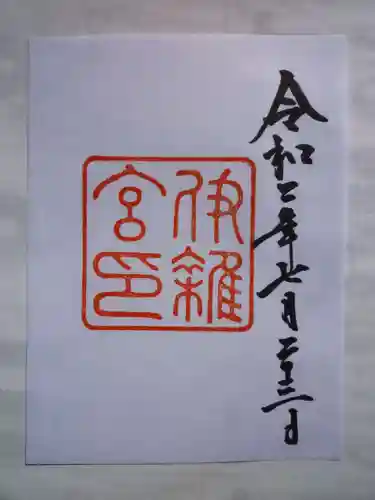 令和二年七月二十三日
伊雜
宮印